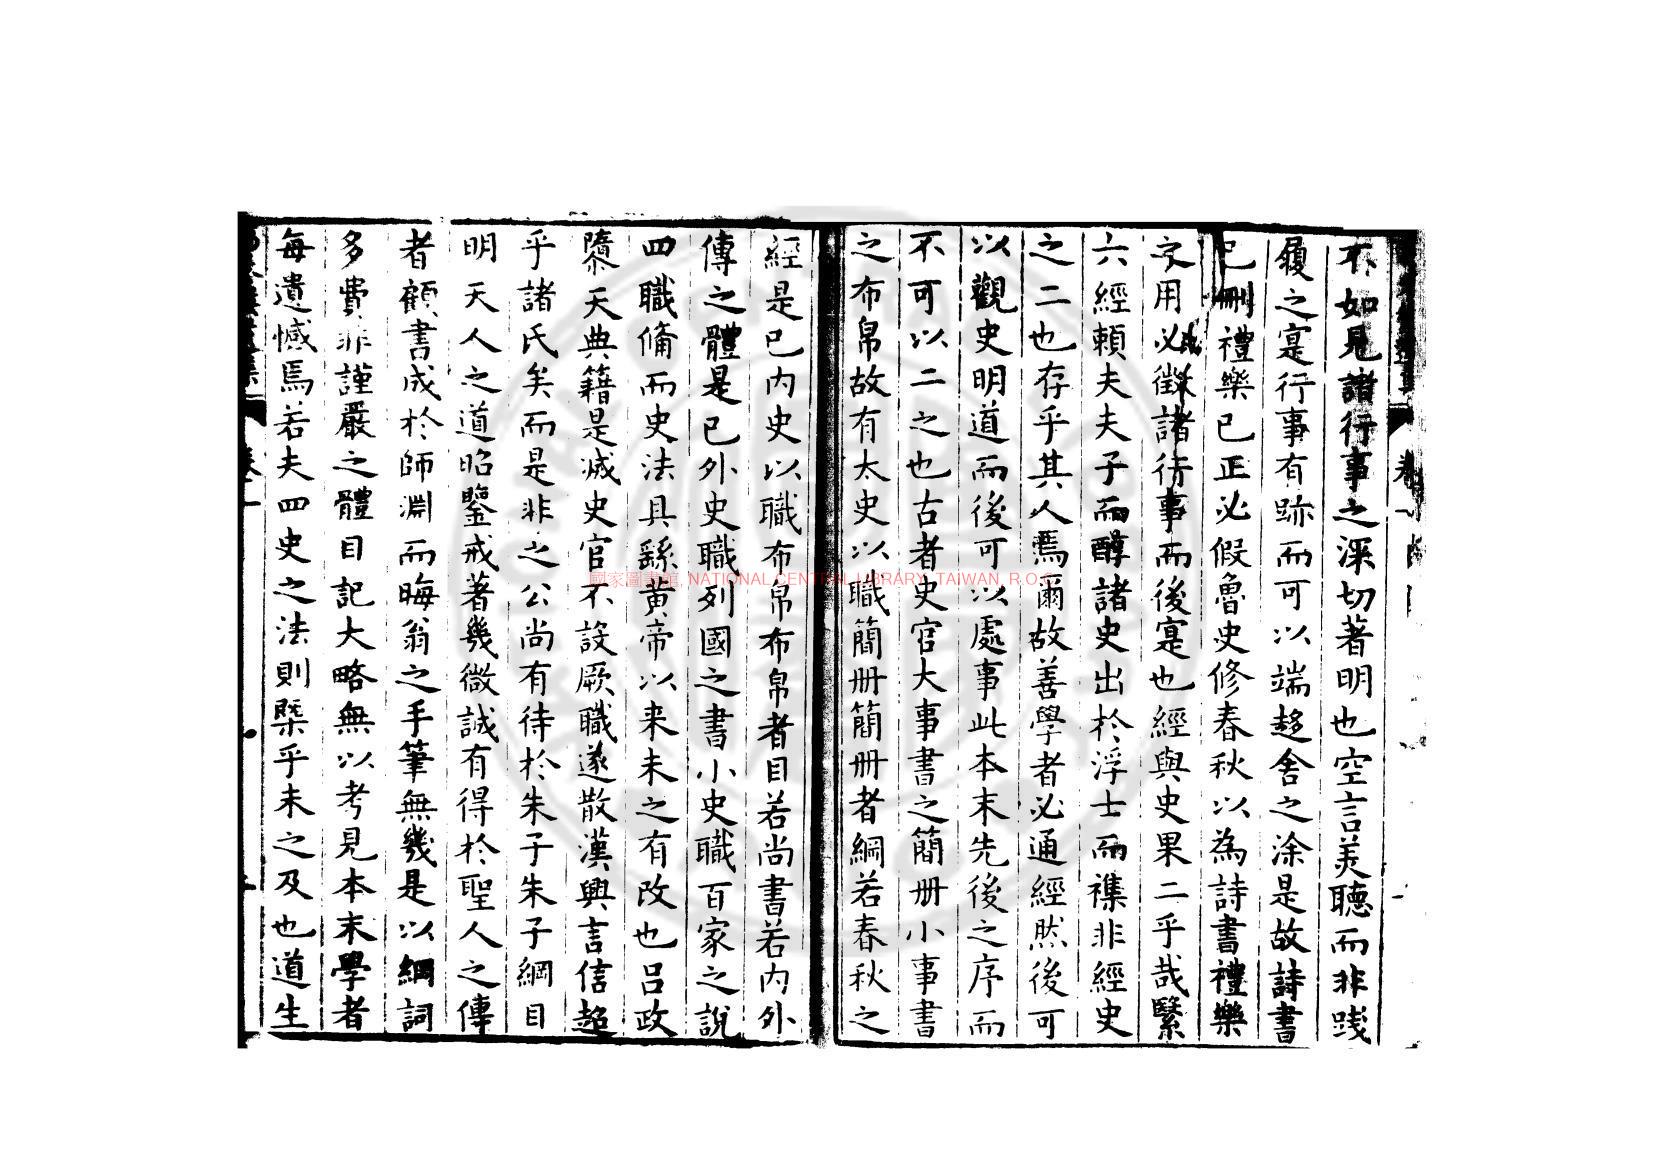 不如見諸行事之深切著明也空言美聽而非踐
履之寔行事有跡而可以端趍舍之涂是故詩書
已刪禮樂已正必假魯史修春秋以為詩書禮樂
之用必徵諸行事而後寔也經與史果二乎哉繄
六經賴夫夫子而醇諸史出於浮士而襍非經史
之二也存乎其人焉爾故善學者必通經然後可
以觀史明道而後可以處事此本末先後之序而
不可以二之也古者史官大事書之簡册小事書
之布帛故有太史以職簡册簡册者綱若春秋之
經是已內史以職布帛布帛者目若尚書若內外
傳之體是已外史職列國之書小史職百家之說
四職俻而史法具繇黃帝以来未之有改也呂政
隳天典籍是滅史官不設厥職遂散漢興言信超
乎諸氏矣而是非之公尚有待於朱子朱子綱目
明天人之道昭鑒戒著幾微誠有得於聖人之傳
者顧書成於師淵而晦翁之手筆無幾是以綱詞
多費非謹嚴之體目記大略無以考見本末學者
每遺憾焉若夫四史之法則槩乎未之及也道生
國家圖書館, NATIONAL CENTRAL LIBRARY, TAIWAN, R.O.C